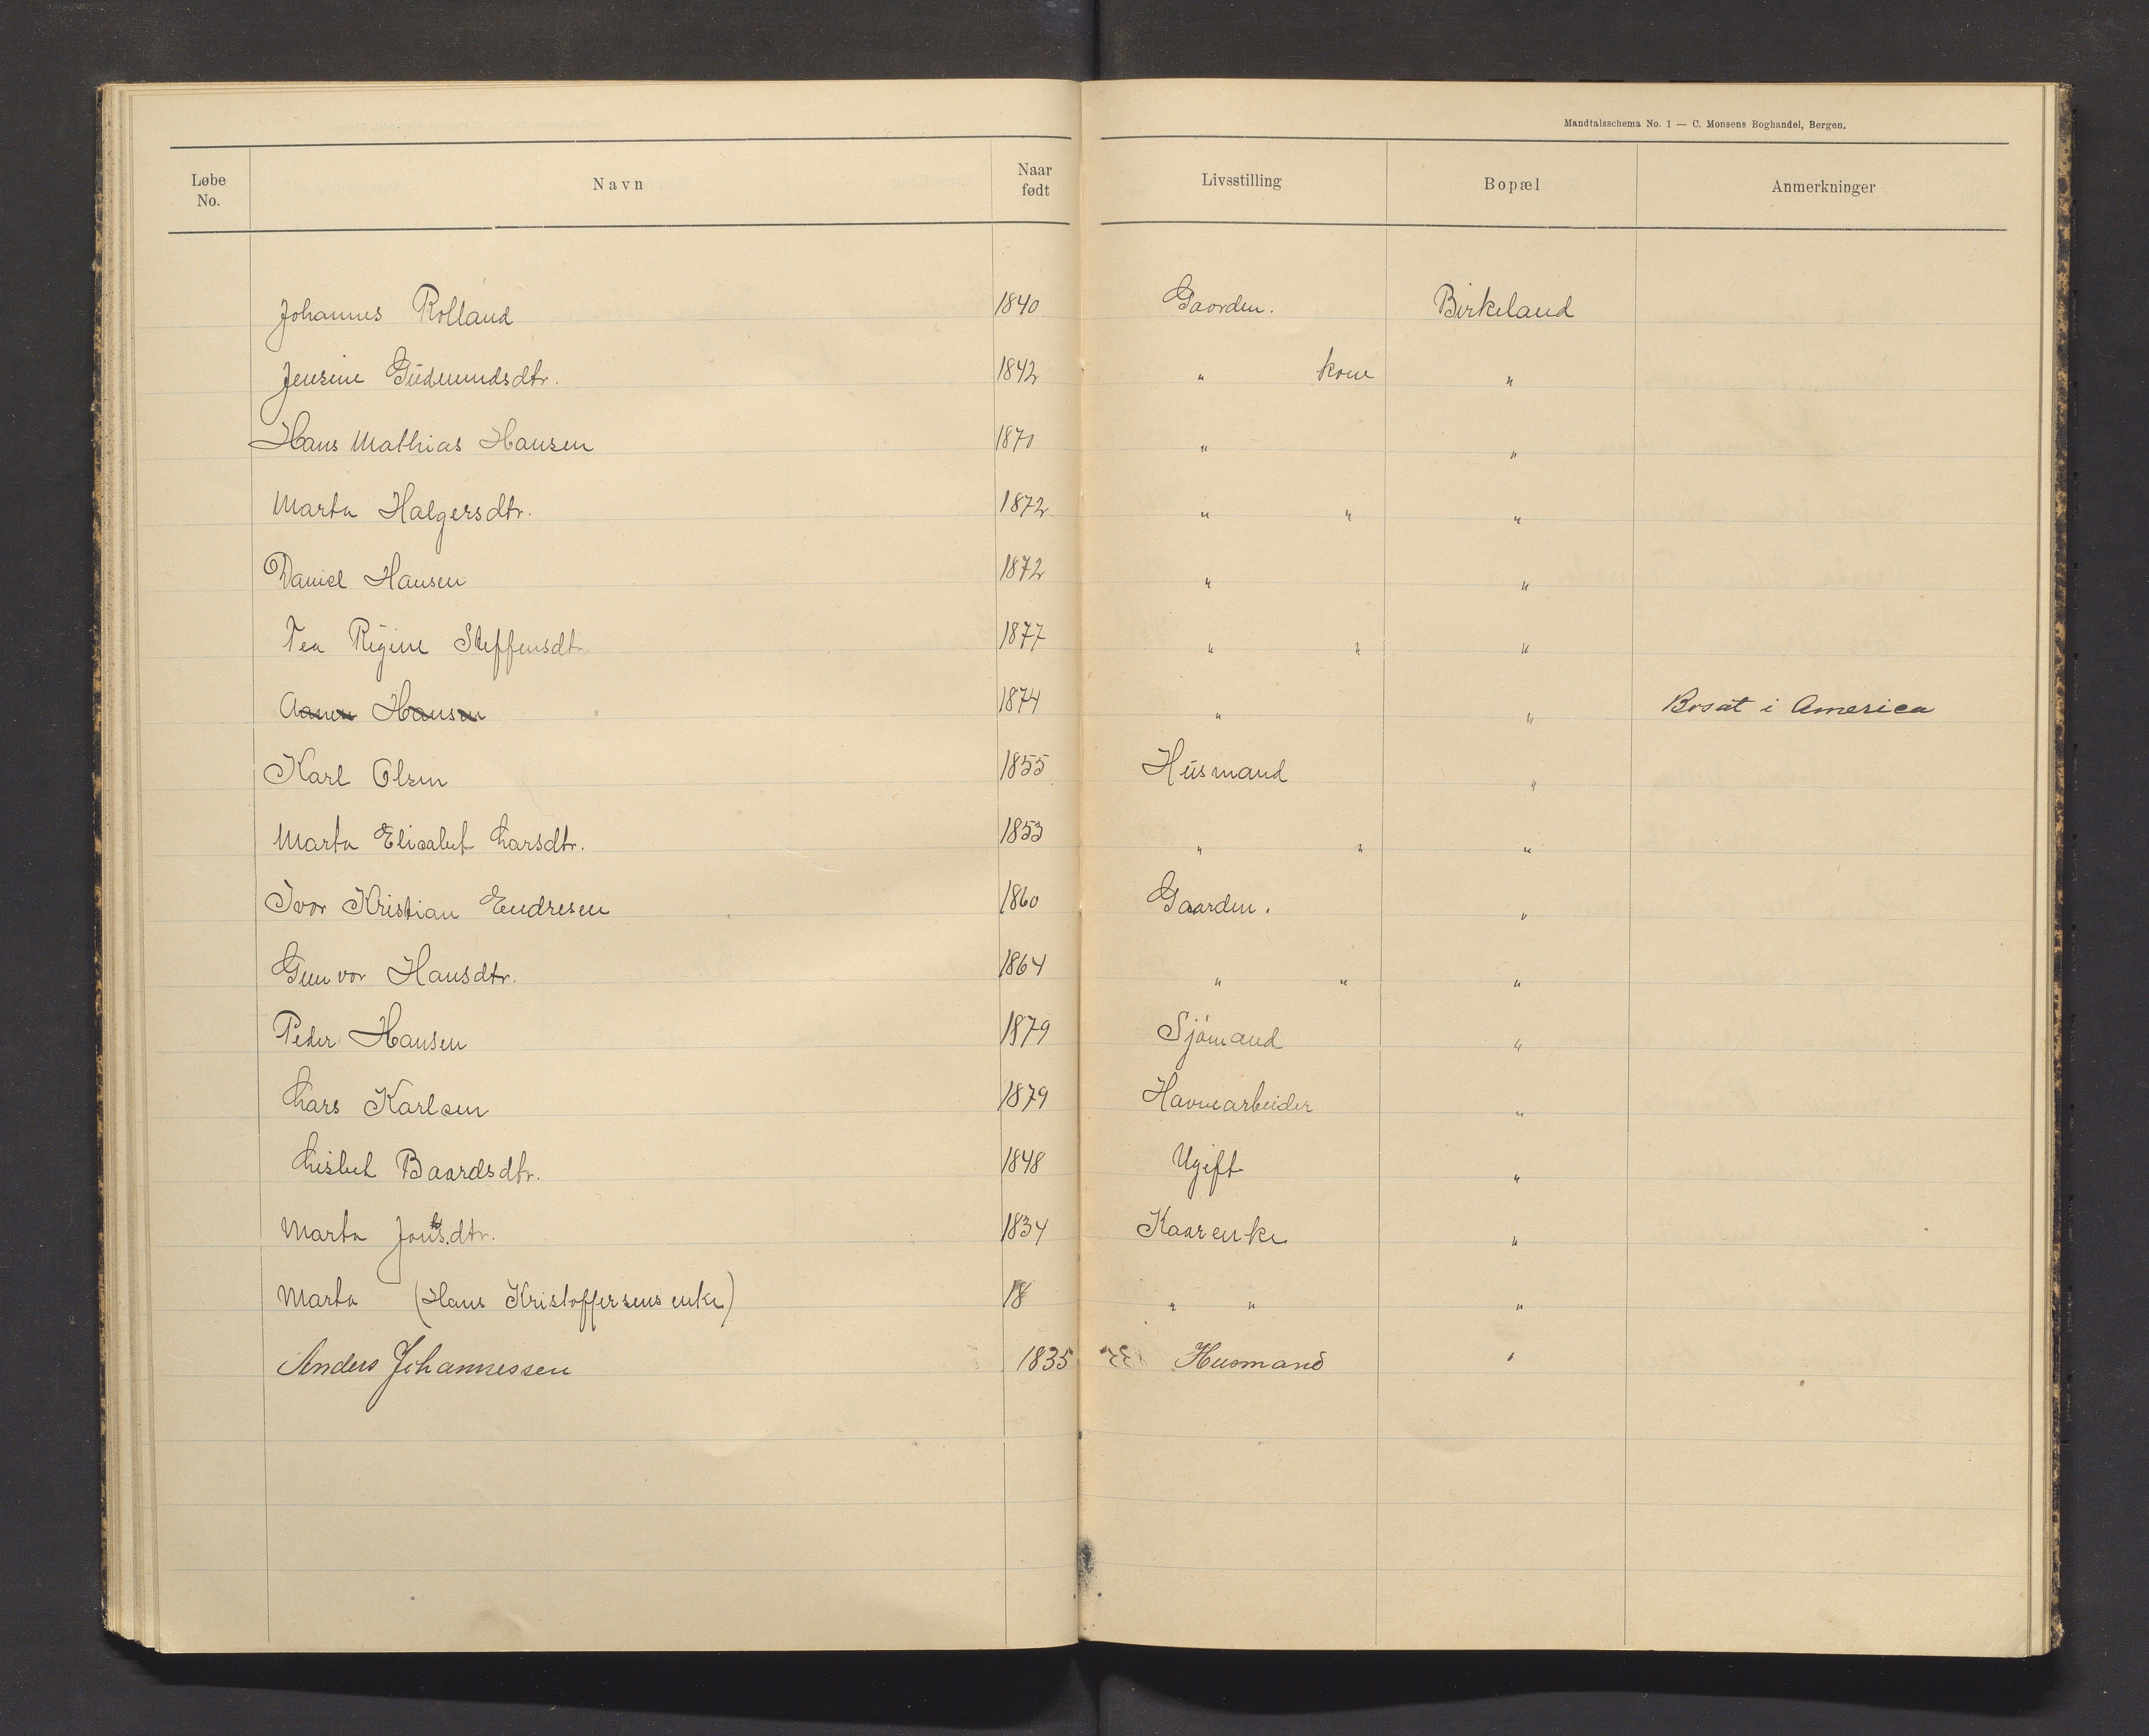 Mandtalsschema No. 1 — C. Monsens Boghandel, Bergen.
Løbe No. Navn Naar født Livsstilling Bopæl Anmerkninger
Johannes Rolland 1840 Gaarden. Birkeland
Jensine Gudmundsdtr. 1842 " kone "
Hans Mathias Hansen 1870 " "
Marta Halgersdtr. 1872 " " "
Daniel Hansen 1872 " "
Tea Regine Steffensdtr. 1877 " " "
Hansen 1874 " " Bosat i America
Karl Olsen 1855 Husmand "
Marta Elisabet Larsdtr. 1853 " " "
Ivor Kristian Endresen 1860 Gaarden. "
Gunvor Hansdtr. 1864 " " "
Peder Hansen 1879 Sjömand "
Lars Karlsen 1879 Havnearbeider "
Lisbet Baardsdtr. 1848 Ugift "
Marta Jonsdtr. 1834 Kaarenke "
Marta (Hans Kristoffersens enke) 18 " " "
Anders Johannessen 1835 Husmand "